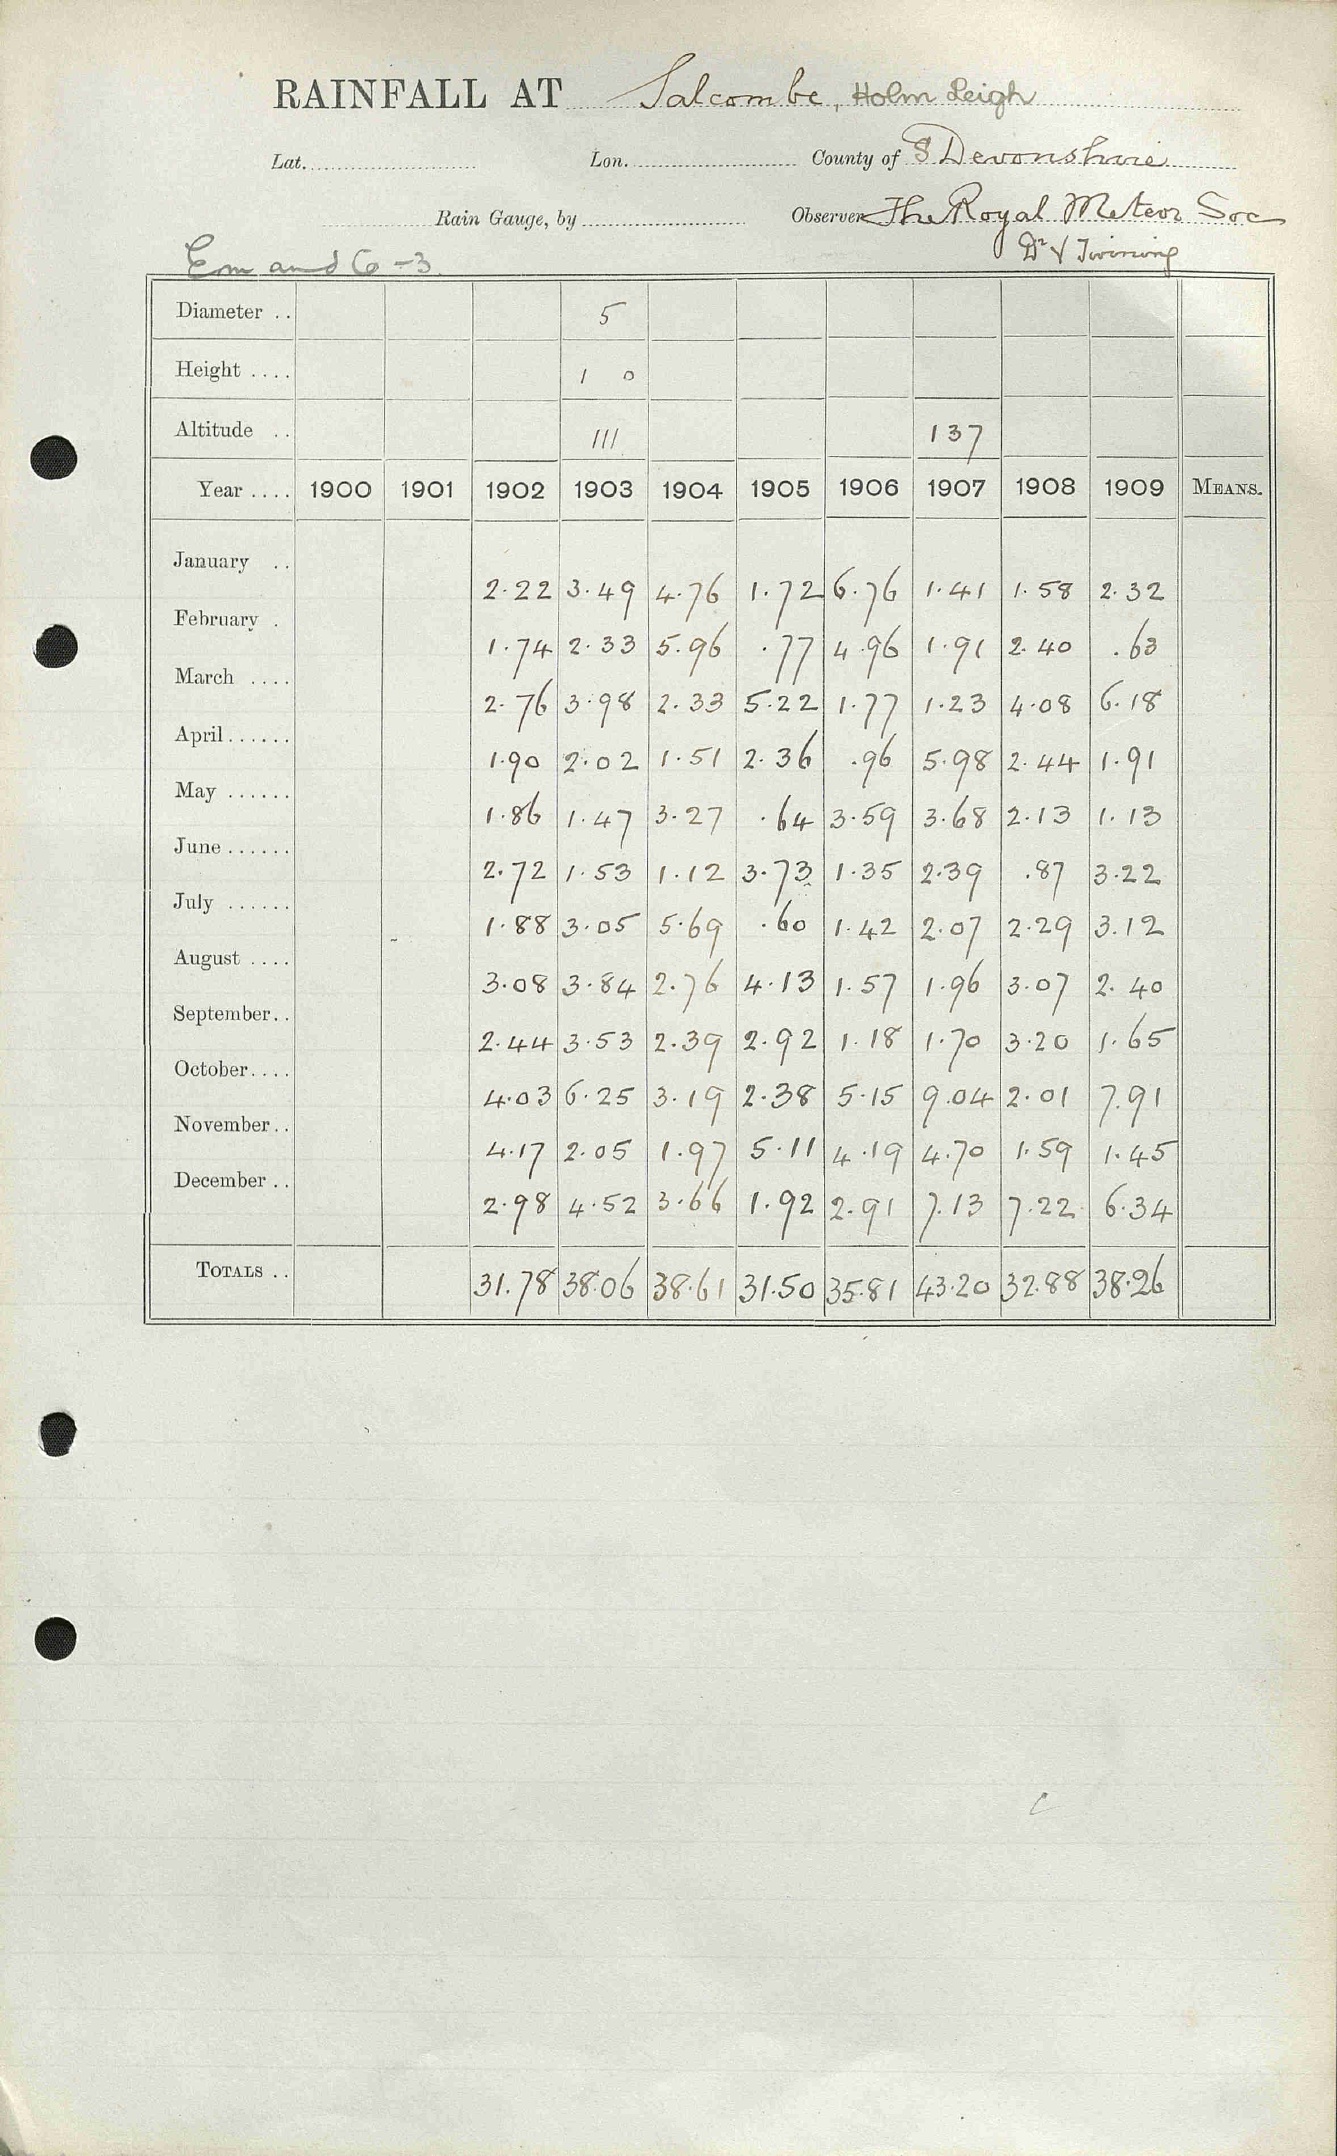 RAINFALL AT Salcombe, Holm Leigh
Lat. Lon. County of S Devonshire
Rain Gauge, by Observer The Royal Meteor Soc
Em and 6 -3 Dr V Twining
Diameter .. 5
Height .... 1 0
Altitude .. 111 137
Year .... 1900 1901 1902 1903 1904 1905 1906 1907 1908 1909 MEANS.
January .. 2.22 3.49 4.76 1.72 6.76 1.41 1.58 2.32
February . 1.74 2.33 5.96 .77 4.96 1.91 2.40 .63
March .... 2.76 3.98 2.33 5.22 1.77 1.23 4.08 6.18
April...... 1.90 2.02 1.51 2.36 .96 5.98 2.44 1.91
May ...... 1.86 1.47 3.27 .64 3.59 3.68 2.13 1.13
June ...... 2.72 1.53 1.12 3.73 1.35 2.39 .87 3.22
July ...... 1.88 3.05 5.69 .60 1.42 2.07 2.29 3.12
August .... 3.08 3.84 2.76 4.13 1.57 1.96 3.07 2.40
September.. 2.44 3.53 2.39 2.92 1.18 1.70 3.20 1.65
October.... 4.03 6.25 3.19 2.38 5.15 9.04 2.01 7.91
November.. 4.17 2.05 1.97 5.11 4.19 4.70 1.59 1.45
December .. 2.98 4.52 3.66 1.92 2.91 7.13 7.22 6.34
TOTALS .. 31.78 38.06 38.61 31.50 35.81 43.20 32.88 38.26